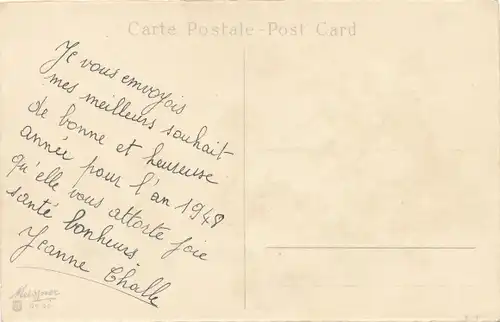 Carte Postale-Post Card
Je vous envoyois
mes meilleurs souhait
de bonne et heureuse
année pour l'an 1948
qu'elle vous attorte joie
santé bonheurs.
Jeanne Challe
Meissner